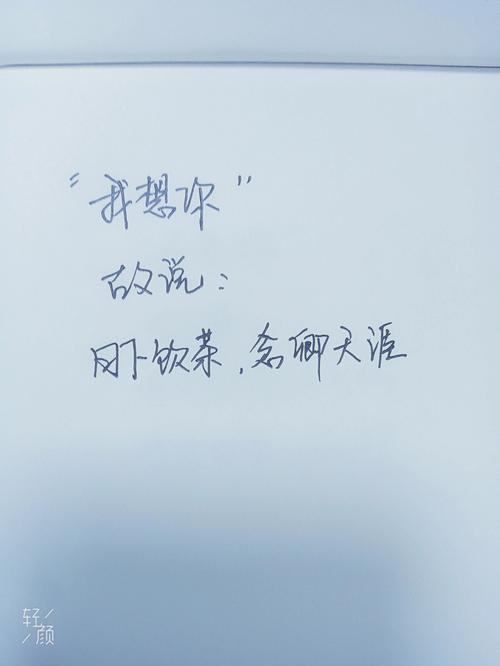 “我想你”
故说：
月下饮茶，念卿天涯
轻
颜